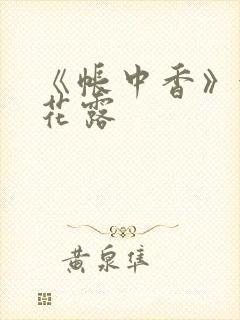 《帐中香》
花露
黄泉隼